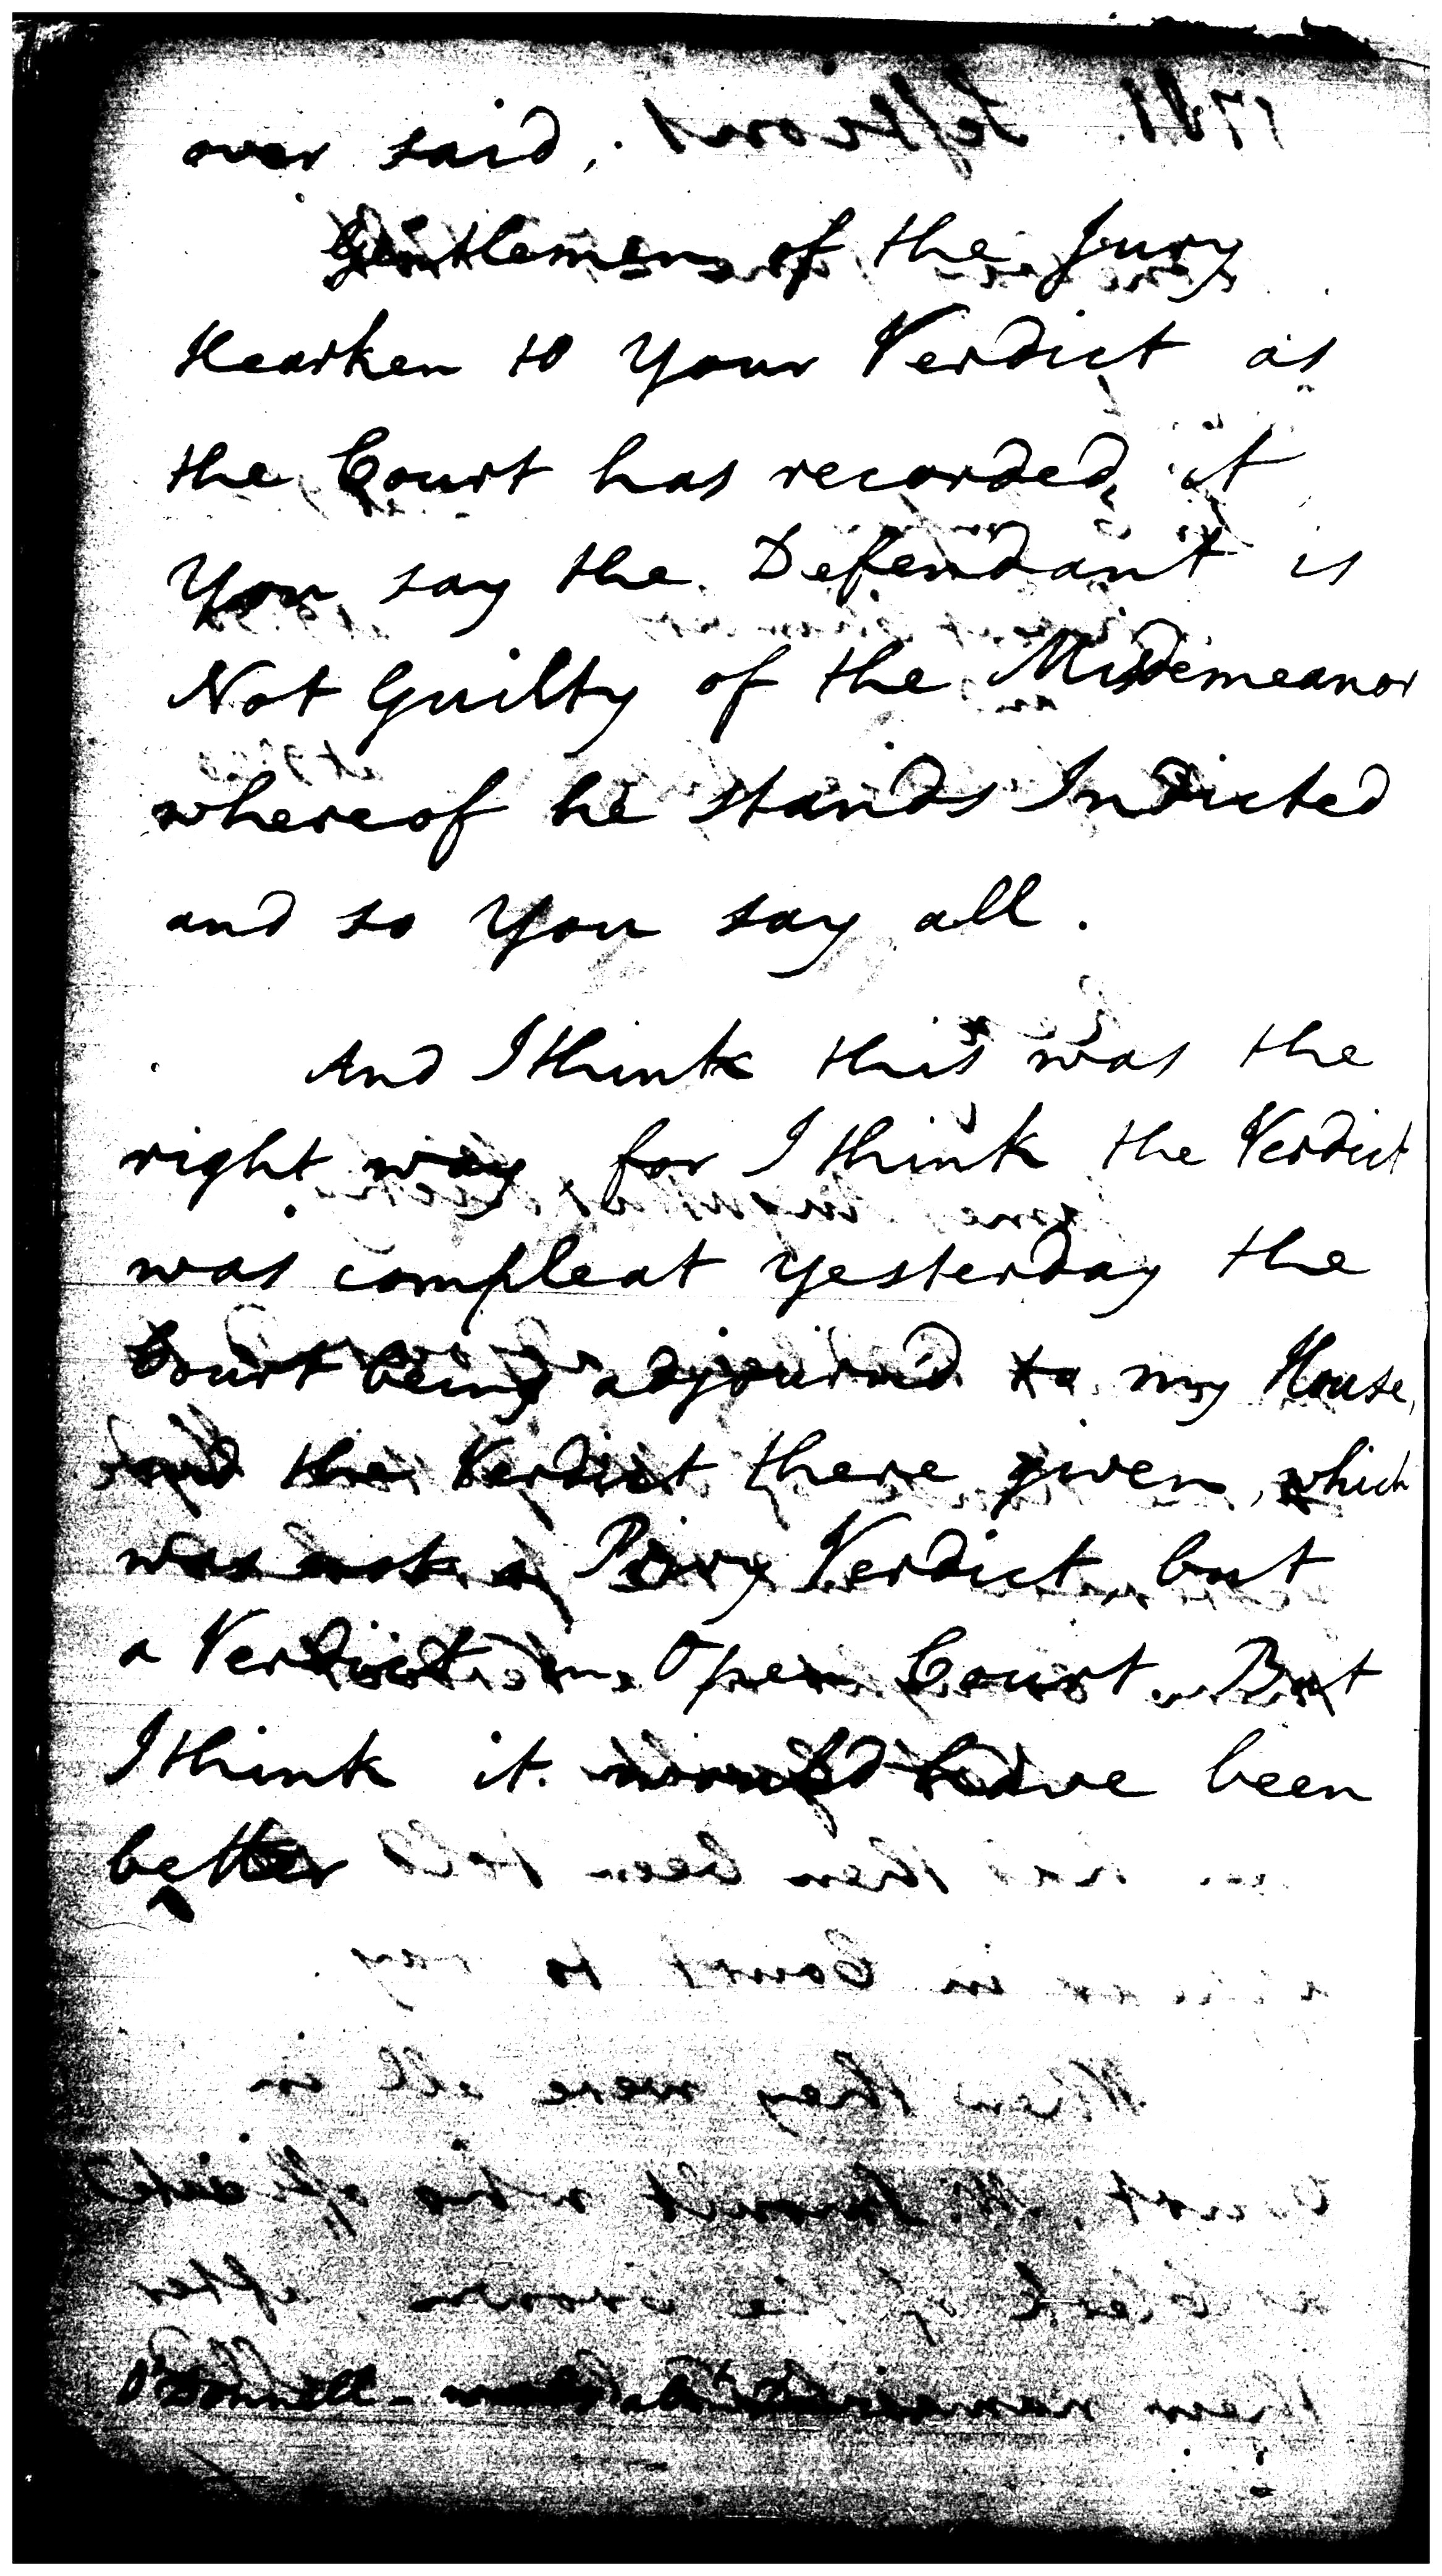 over said,
Gentlemen of the Jury
Hearken to Your Verdict as
the Court has recorded it
You say the Defendant is
Not Guilty of the Misdemeanor
whereof he stands Indicted
and so You say all.
And I think this was the
right way for I think the Verdict
was compleat yesterday the
Court being adjourn'd to my House,
and the Verdict there given, which
was not a Privy Verdict, but
a Verdict in Open Court. But
I think it would have been
better
O'Donnell -